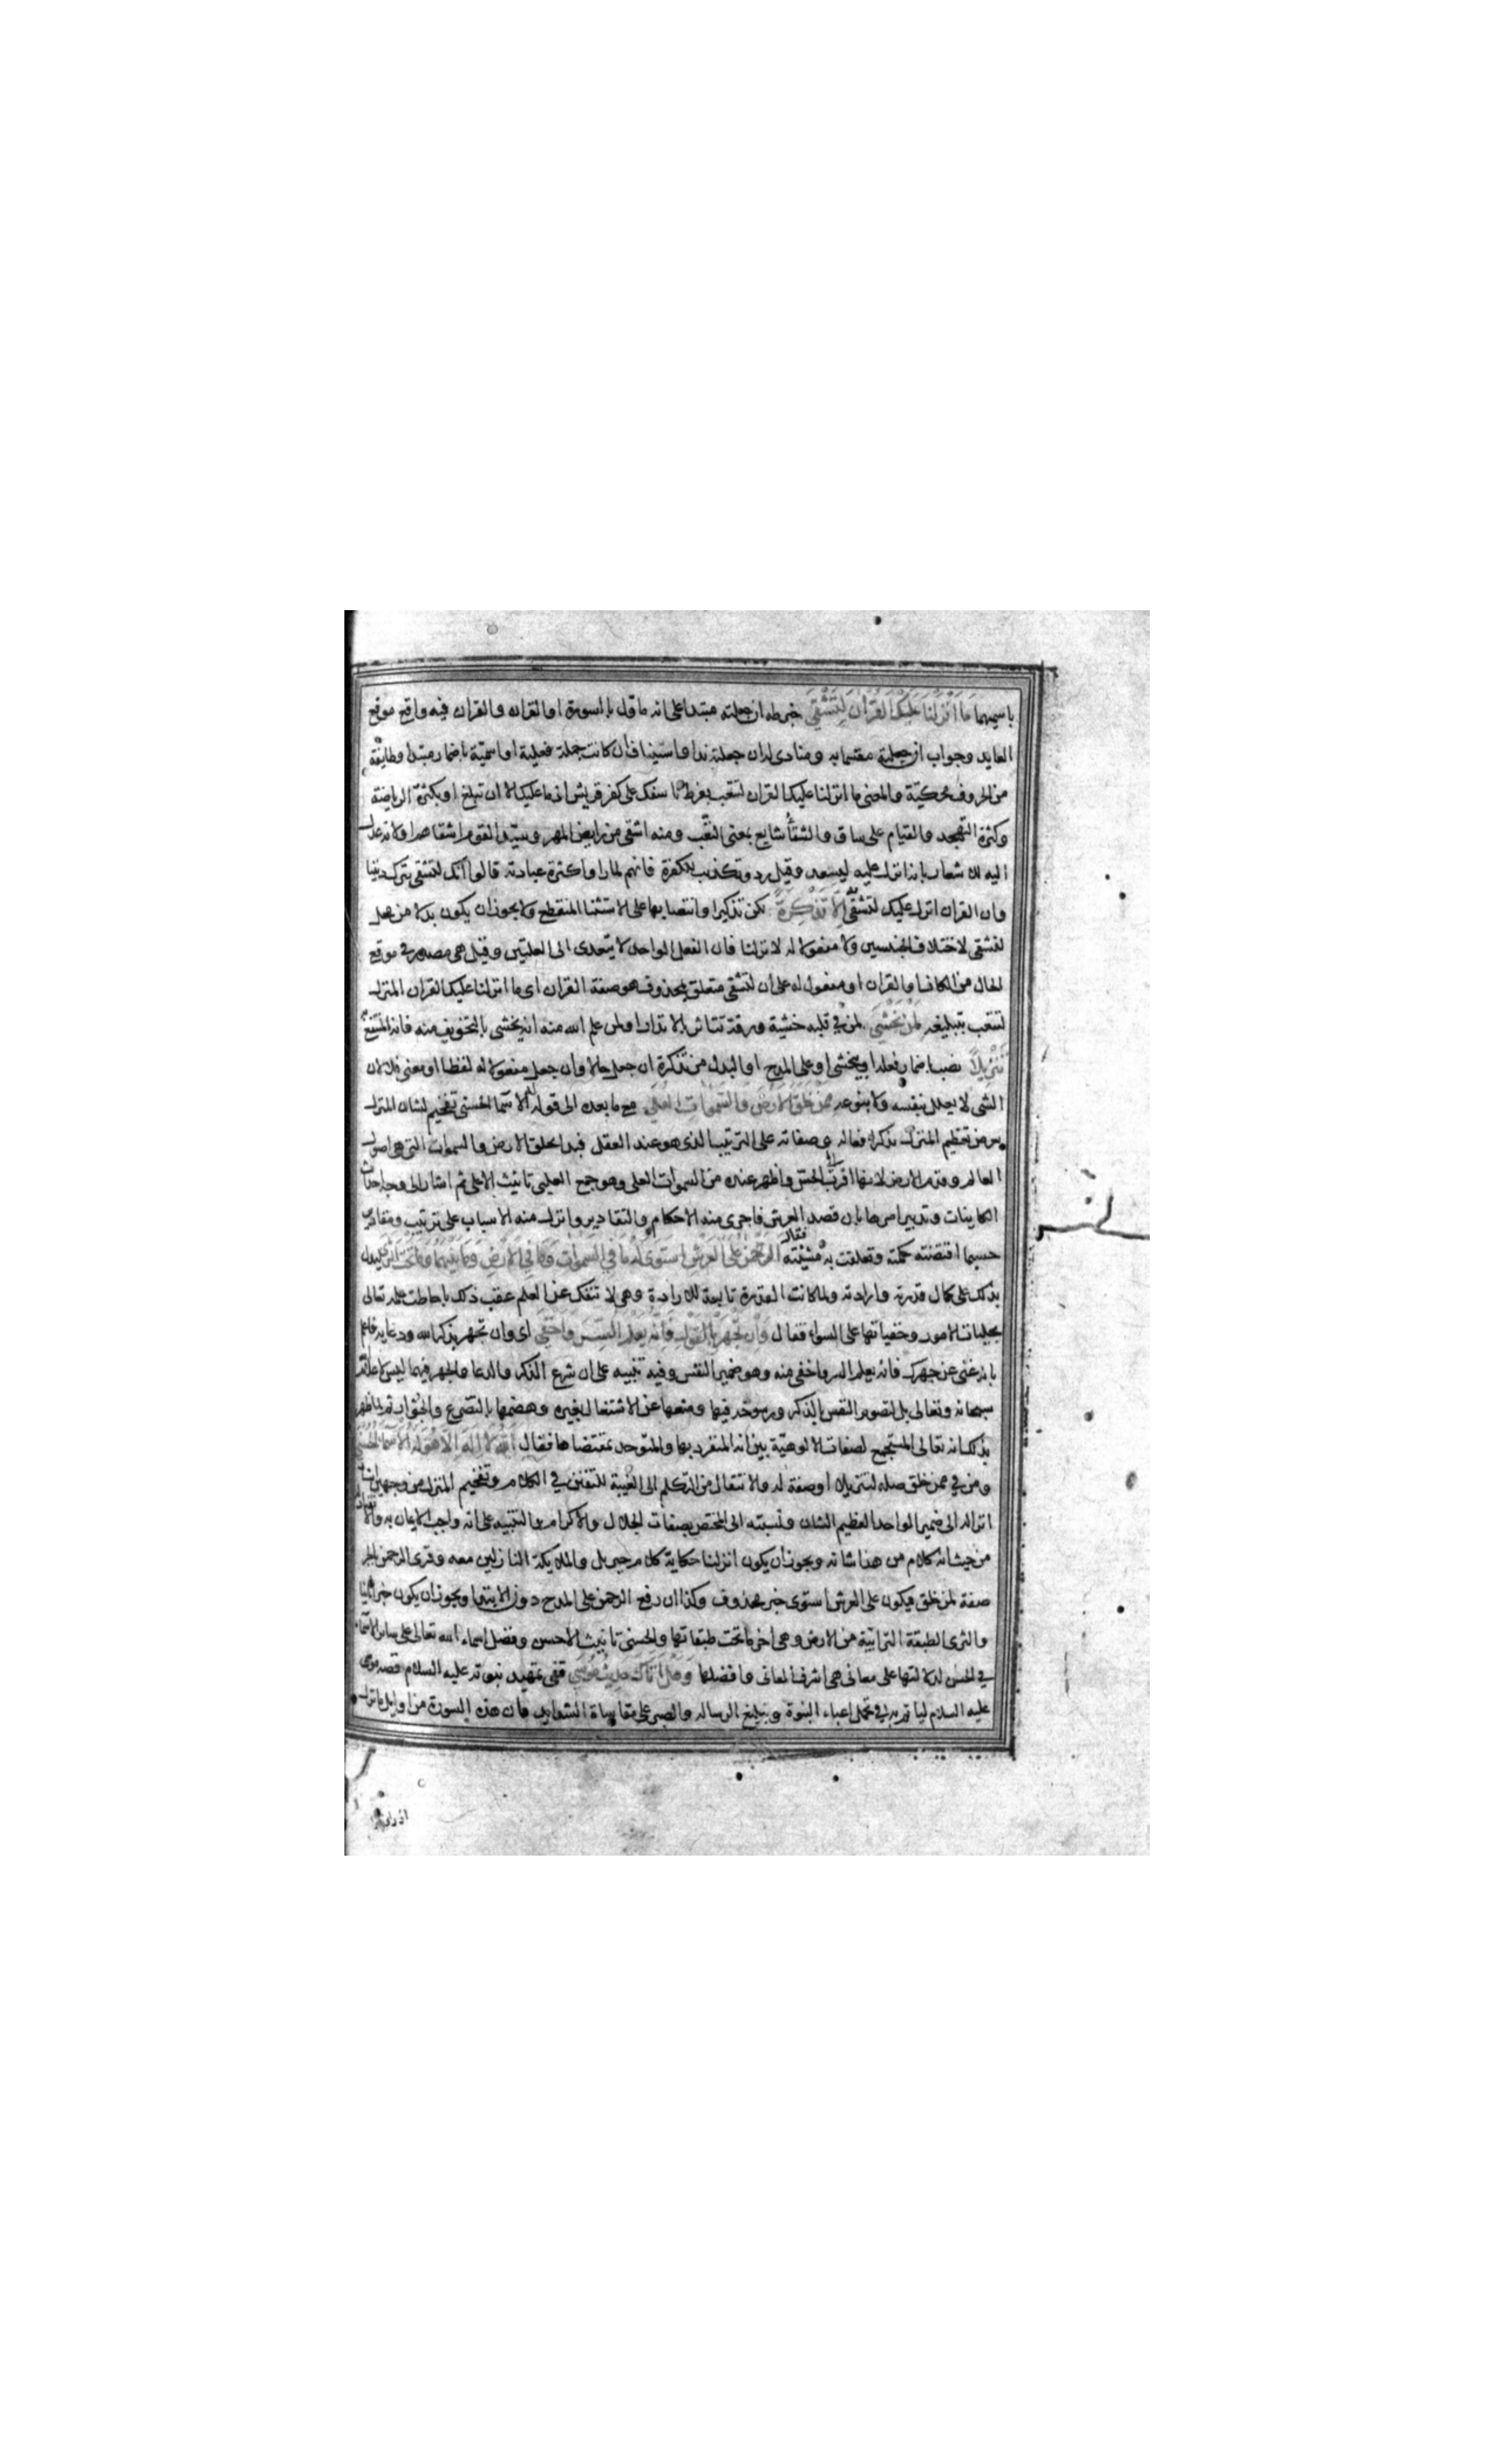 باسميهما مَا اَنْزَلْنَا عَلَيْكَ الْقُرْاٰنَ لِتَشْقٰى خبر طه ان جعلته مبتدا على انه ماول بالسورة او القران والقران فيه واقع موقع
العايد وجواب ان جعلته مقسما به ومنادى له ان جعلته ندا واستيناف ان كانت جملة فعلية او اسمية باضمار مبتدا وطايفة
من الحروف محكية والمعنى ما انزلنا عليك القران لتتعب بفرط تاسفك على كفر قريش اذ ما عليك الا ان تبلغ او بكثرة الرياضة
وكثرة التهجد والقيام على ساق والشقا شايع بمعنى التعب ومنه اشقى من رايض المهر وسيد القوم اشقاهم ولانه عدل
اليه للاشعار بانه انزل عليه ليسعد وقيل رد وتكذيب للكفرة فانهم لما راوا كثرة عبادته قالوا انك لتشقى بترك ديننا
وان القران انزل عليك لتشقى به اِلَّا تَذْكِرَةً لكن تذكيرا وانتصابها على الاستثنا المنقطع ولا يجوز ان يكون بدلا من محل
لتشقى لاختلاف الجنسين ولا مفعولا له لانزلنا فان الفعل الواحد لا يتعدى الى العلتين وقيل هى مصدر فى موقع
الحال من الكاف او القران او مفعول له على ان لتشقى متعلق بمحذوف هو صفة القران اى ما انزلنا عليك القران المنزل
لتتعب بتبليغه لِمَنْ يَخْشٰى لمن فى قلبه خشية ورقة تتاثر بالانذار او لمن علم الله منه انه يخشى بالتخويف منه فانه المنتفع به
تَنْزِيلًا نصب باضمار فعله او بيخشى او على المدح او البدل من تذكرة ان جعل حالا وان جعل مفعولا له لفظا او معنى فلا لان
الشى لا يعلل بنفسه ولا بنوعه مِمَّنْ خَلَقَ الْاَرْضَ وَالسَّمٰوَاتِ الْعُلٰى مع ما بعده الى قوله له الاسما الحسنى تفخيم لشان المنزل
بعرض تعظيم المنزل بذكر افعاله وصفاته على الترتيب الذى هو عند العقل فبدا بخلق الارض والسموات التى هى اصول
العالم وقدم الارض لانها اقرب الى الحس واظهر عنده من السموات العلى وهو جمع العليى تانيث الاعلى ثم اشار الى وجه احداث
الكاينات وتدبير امرها بان قصد العرش فاجرى منه الاحكام والتقادير وانزل منه الاسباب على ترتيب ومقادير
حسبما اقتضته حكمته وتعلقت به مشيته فقال اَلرَّحْمٰنُ عَلَى الْعَرْشِ اسْتَوٰى لَهُ مَا فِى السَّمٰوَاتِ وَمَا فِى الْاَرْضِ وَمَا بَيْنَهُمَا وَمَا تَحْتَ الثَّرٰى ليدل
بذلك على كمال قدرته وارادته ولما كانت القدرة تابعة للارادة وهى لا تنفك عن العلم عقب ذلك باحاطة علمه تعالى
بجليات الامور وخفياتها على السواء فقال وَاِنْ تَجْهَرْ بِالْقَوْلِ فَاِنَّهُ يَعْلَمُ السِّرَّ وَاَخْفٰى اى وان تجهر بذكر الله ودعايه فاعلم
بانه غنى عن جهرك فانه يعلم السر واخفى منه وهو ضمير النفس وفيه تنبيه على ان شرع الذكر والدعا والجهر فيهما ليس لاعلام الله
سبحانه وتعالى بل لتصوير النفس بالذكر ورسوخه فيها ومنعها عن الاشتغال بغيره وهضمها بالتضرع والجؤار ثم لما ظهر
بذلك انه تعالى المستجمع لصفات الالوهية بين انه المتفرد بها والمتوحد بمقتضاها فقال اَللّٰهُ لَا اِلٰهَ اِلَّا هُوَ لَهُ الْاَسْمَاءُ الْحُسْنٰى
ومن فى ممن خلق صلة لتنزيلا او صفة له والانتقال من التكلم الى الغيبة للتفنن فى الكلام وتفخيم المنزل من وجهين اسناد
انزاله الى ضمير الواحد العظيم الشان ونسبته الى المختص بصفات الجلال والاكرام والتنبيه على انه واجب الايمان به والانقياد له
من حيث انه كلام من هذا شانه ويجوز ان يكون انزلنا حكاية كلام جبريل والملايكة النازلين معه وقرى الرحمن بالجر
صفة لمن خلق فيكون على العرش استوى خبر محذوف وكذا ان رفع الرحمن على المدح دون الابتدا ويجوز ان يكون خبرا ثانيا
والثرى الطبقة الترابية من الارض وهى اخر ما تحت طبقاتها والحسنى تانيث الاحسن وفضل اسماء الله تعالى على ساير الاسماء
فى الحسن لدلالتها على معانى هى اشرف المعانى وافضلها وَهَلْ اَتٰيكَ حَدِيثُ مُوسٰى قفى تمهيد نبوته عليه السلام قصة موسى
عليه السلام لياتم به فى تحمل اعباء النبوة وتبليغ الرسالة والصبر على مقاساة الشدايد فان هذه السورة من اوايل ما نزل
اذ راى